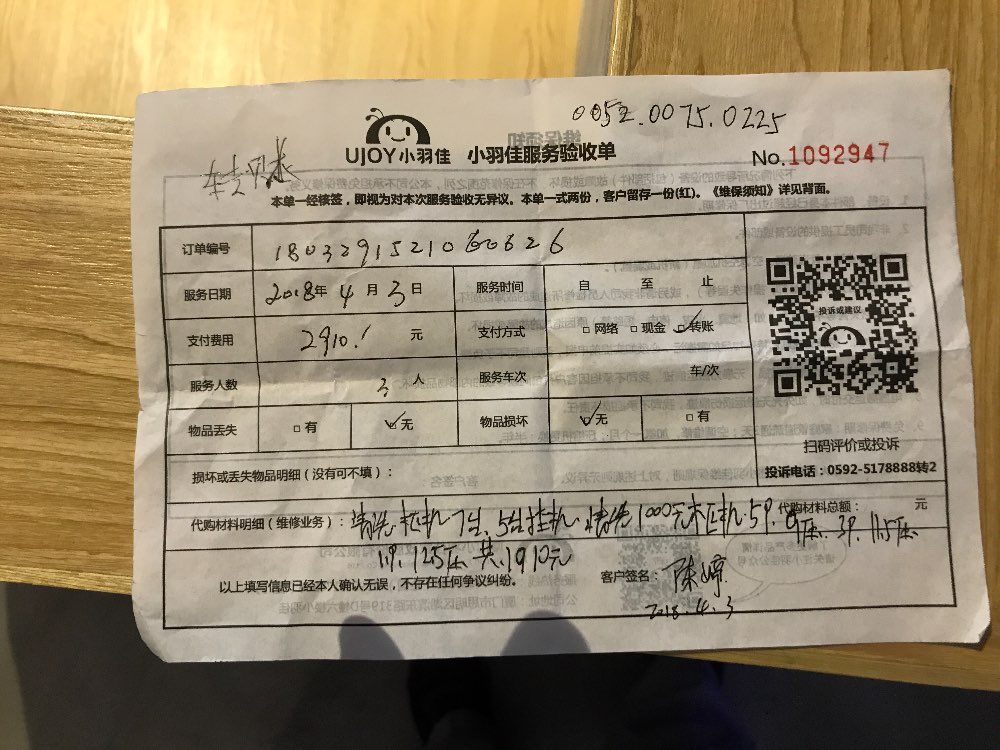 0052.0075.0225
UJOY小羽佳 小羽佳服务验收单
No.1092947
本单一经核签，即视为对本次服务验收无异议。本单一式两份，客户留存一份(红)。《维保须知》详见背面。
订单编号 1803291521060626
服务日期 2018年 4 月 3 日 服务时间 自 至 止
投诉或建议
支付费用 2910.1 元 支付方式 □网络 □现金 ☑转账
服务人数 3 人 服务车次 车/次
物品丢失 □有 ☑无 物品损坏 ☑无 □有
扫码评价或投诉
投诉电话：0592-5178888转2
损坏或丢失物品明细（没有可不填）：
代购材料明细（维修业务）： 清洗柜机7台、5台挂机 清洗1000元 柜机 5P. 代购材料总额： 元
3P. 1.5匹
1P. 125匹 共1910元
以上填写信息已经本人确认无误，不存在任何争议纠纷。 客户签名：陈婷
2018.4.3